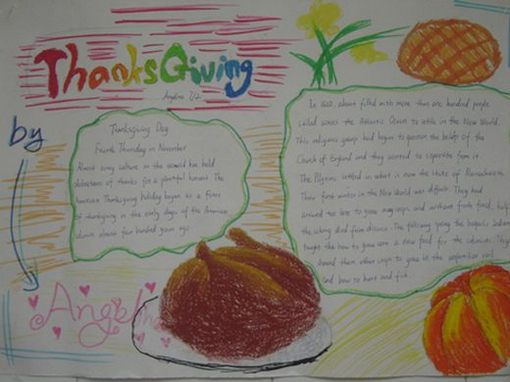 ThanksGiving
Angelina
by
Thanksgiving Day
Fourth Thursday in November
Almost every culture in the world has held
celebrations of thanks for a plentiful harvest. The
American Thanksgiving holiday began as a feast
of thanksgiving in the early days of the American
almost four hundred years ago
Angelina
In 1620, a boat filled with more than one hundred people
sailed across the Atlantic Ocean to settle in the New World.
This religious group had begun to question the beliefs of the
Church of England and they wanted to separate from it.
The Pilgrims settled in what is now the state of Massachusetts.
Their first winter in the New World was difficult. They had
arrived too late to grow many crops, and without fresh food, half
the died from disease. The following spring the Iroquois Indians
taught the how to grow corn a new food for the colonists. They
showed them other crops to grow in the unfamiliar soil
and how to hunt and fish.